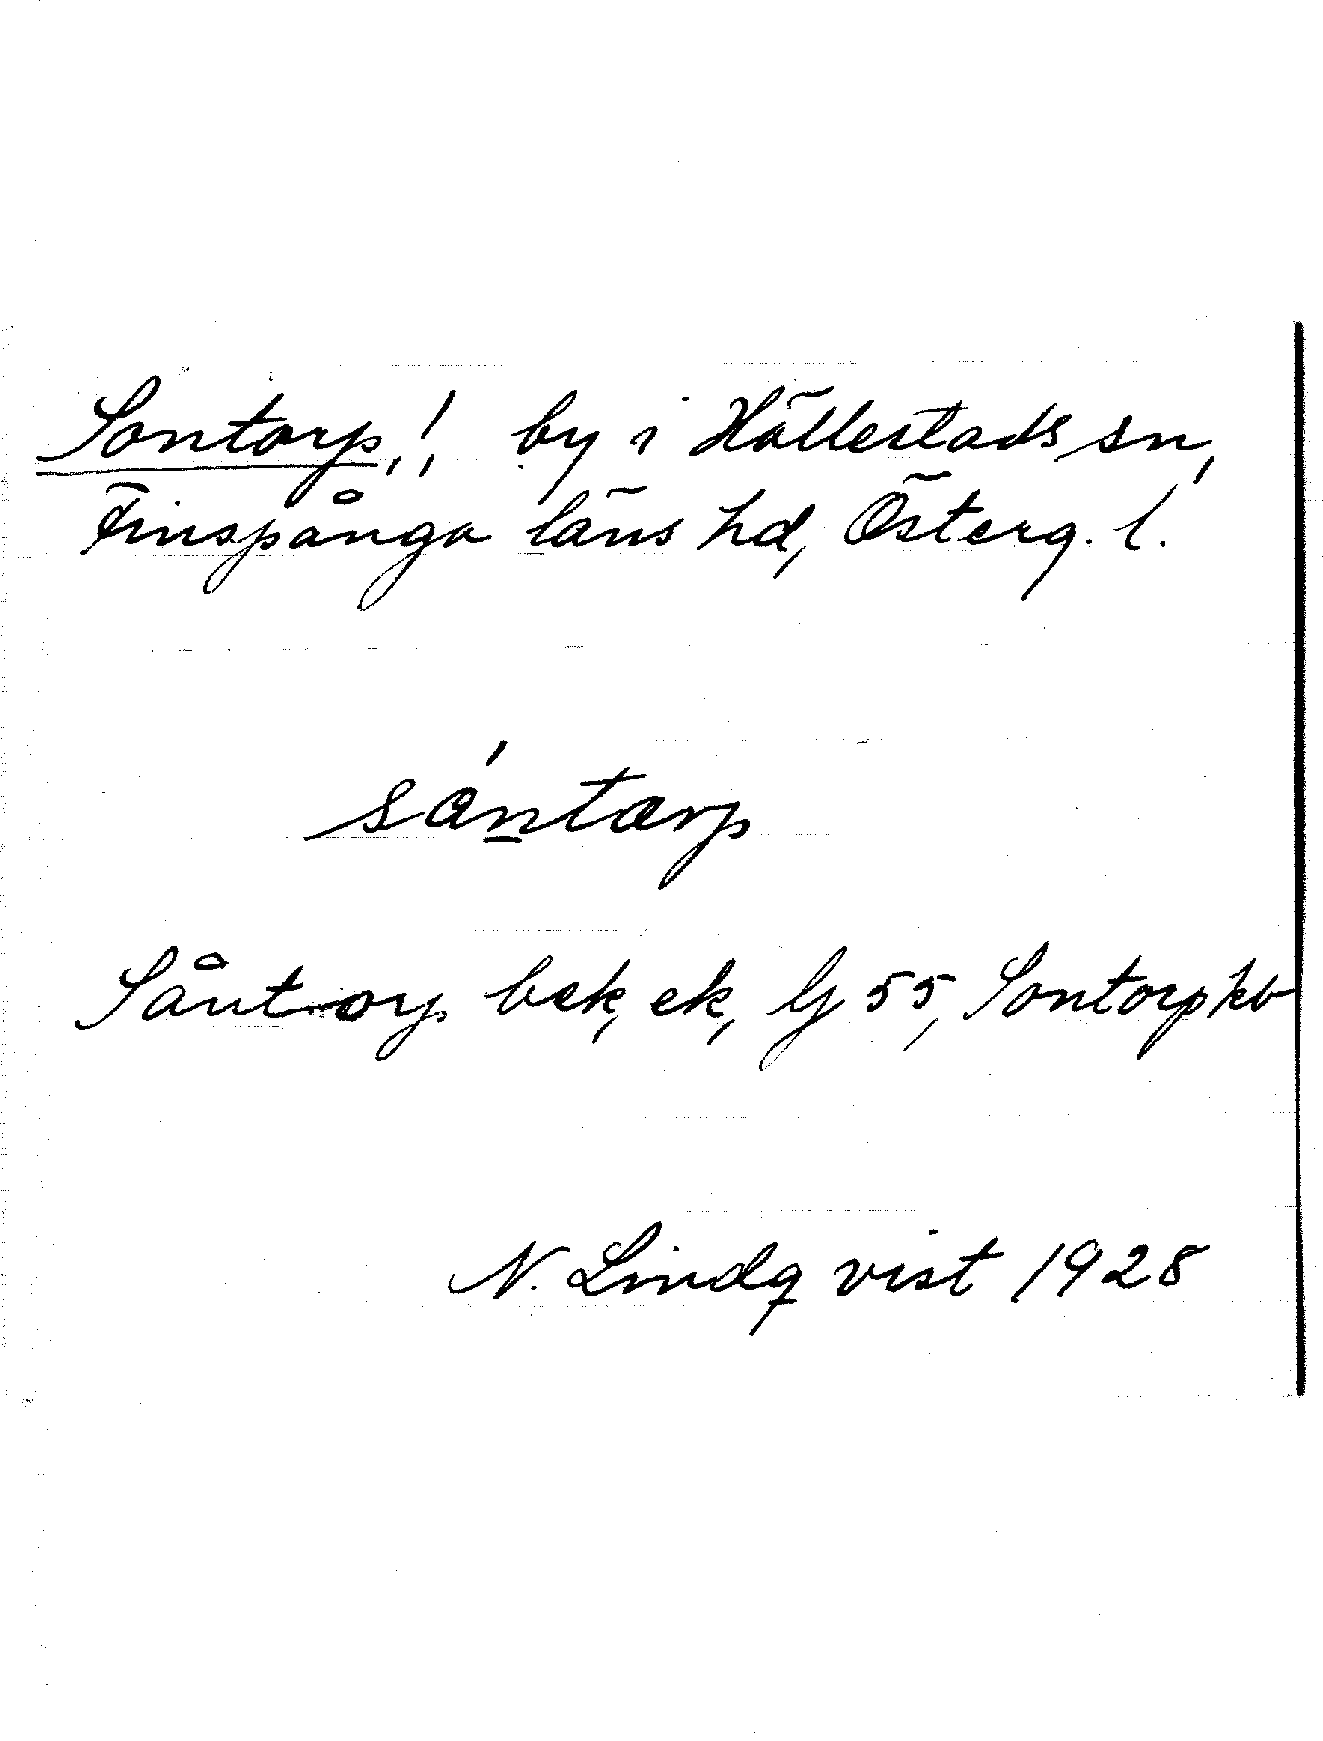 Sontorp,!, by i Hällestads sn,
Finspånga läns hd, Österg. l.
sán̲tɷrp
Såntorp bek, ek, lj 55, Sontorp kb
N. Lindqvist 1928